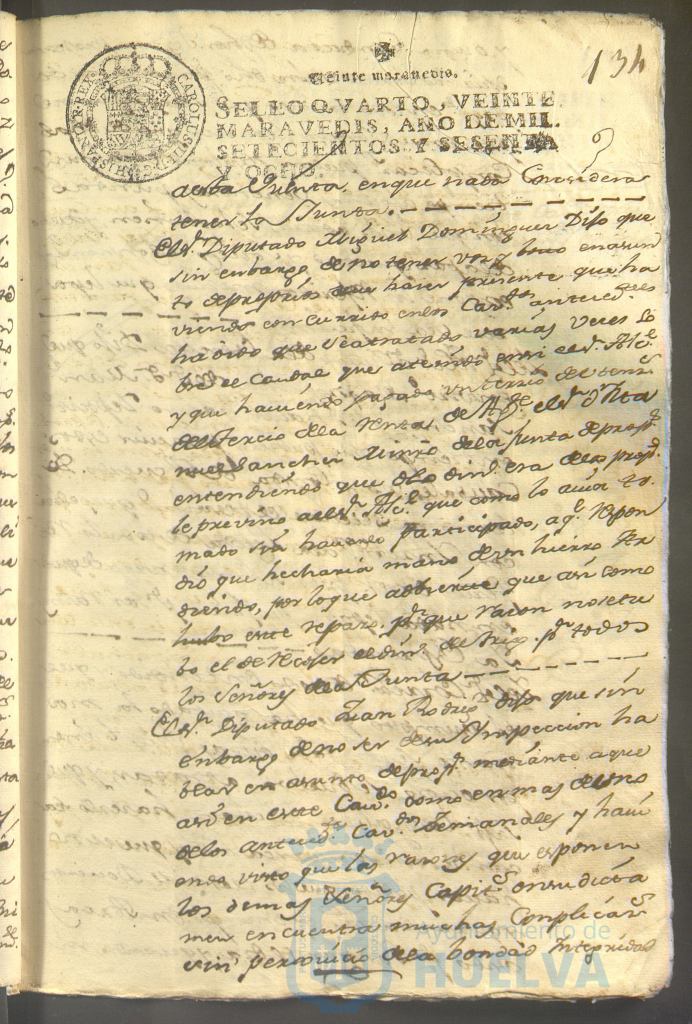 134
Veinte maravedis.
SELLO QVARTO, VEINTE
MARAVEDIS, AÑO DE MIL
SETECIENTOS Y SESENTA
Y OCHO.
CAROLUS III D G HISPANIAR REX
a esta Junta, en que nada Considera
tener la Junta.
El Sr. Diputado Miguel Dominguez Dijo que
sin embargo de no tener voz y voto en asun
to de propios deve hacer presente que ha
viendo concurrido en los Cavdos. anteceds.
ha oido que se a tratado varias veces so
bre el Caudal que atendio en si el Sr.
y que haviendo pagado un tercio
del tercio de la Renta, de el Sr. Dn.
nuel Sanchez Minro. de la Junta de propos.
entendiendo que dho din. era de los prop.
le previno a el Sr. que como lo avia to
mado sin haverlo participado, a q. respon
dio que hecharia mano de un hierro Ar
diendo, por lo que advierte que asi como
hubo este reparo. pr. que razon no se tu
bo el de Recoser el din. de Trigo. pr. todos
los Señores de la Junta
El Sr. Diputado Juan Rodrig. dijo que sin
embargo de no ser de su Ynspeccion ha
blar en asunto de propos. mediante a que
asi en este Cavdo. como en mas de uno
de los anteceds. Cavdos. Semanales y havi
endo visto que las razones que esponen
los demas Señores Capit. en su dicta
men encuentra muchas Complicas.
sin perjuicio de la bondad Integridad
Ayuntamiento de
HUELVA